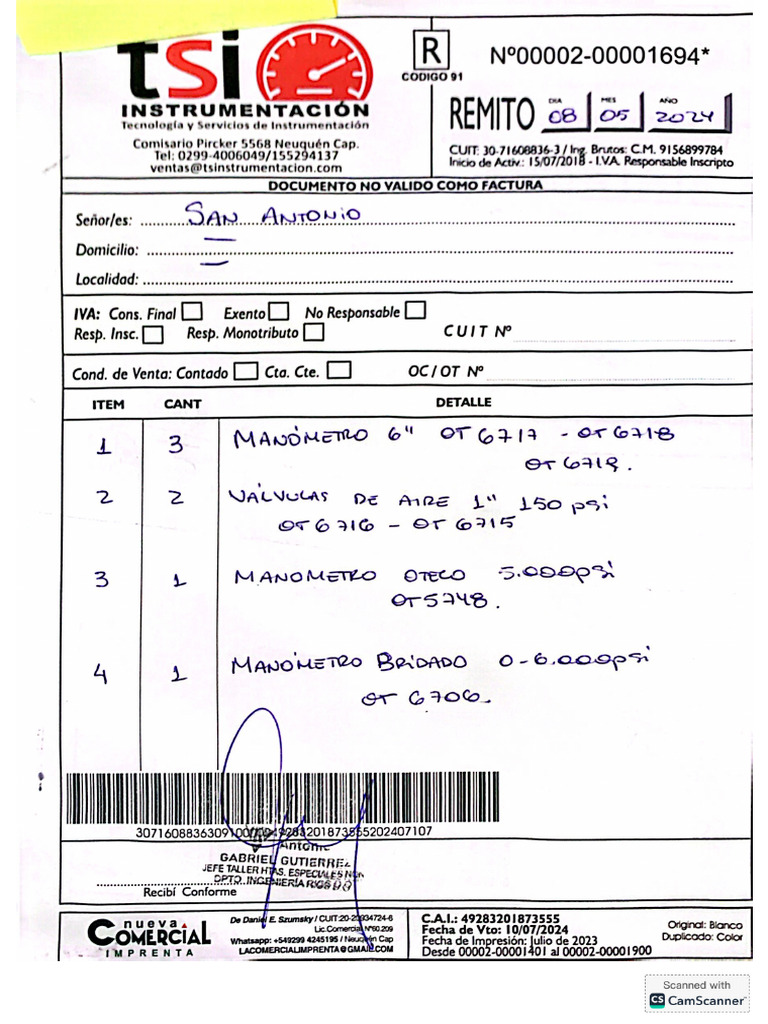 tsi
INSTRUMENTACIÓN
Tecnología y Servicios de Instrumentación
Comisario Pircker 5568 Neuquén Cap.
Tel: 0299-4006049/155294137
ventas@tsinstrumentacion.com
R
CODIGO 91
Nº00002-00001694*
REMITO DIA 08 MES 05 AÑO 2024
CUIT: 30-71608836-3 / Ing. Brutos: C.M. 9156899784
Inicio de Activ.: 15/07/2018 - I.V.A. Responsable Inscripto
DOCUMENTO NO VALIDO COMO FACTURA
Señor/es: SAN ANTONIO
Domicilio:
Localidad:
IVA: Cons. Final Exento No Responsable
Resp. Insc. Resp. Monotributo CUIT Nº
Cond. de Venta: Contado Cta. Cte. OC/OT Nº
ITEM CANT DETALLE
1 3 MANÓMETRO 6" OT 6717 - OT 6718
OT 6719.
2 2 VÁLVULAS DE AIRE 1" 150 psi
OT 6716 - OT 6715
3 1 MANOMETRO OTECO 5.000psi
OT 5748.
4 1 MANÓMETRO BRIDADO 0-6.000psi
OT 6706.
Antonio
GABRIEL GUTIERREZ
JEFE TALLER HTAS. ESPECIALES
DPTO. INGENIERÍA
Recibí Conforme
nueva
COMERCIAL
IMPRENTA
De Daniel E. Szumsky / CUIT:
Lic.Comercial Nº60.209
Whatsapp: +549299 4245195 / Neuquén Cap
LACOMERCIALIMPRENTA@GMAIL.COM
C.A.I.: 49283201873555
Fecha de Vto: 10/07/2024
Fecha de Impresión: Julio de 2023
Desde 00002-00001401 al 00002-00001900
Original: Blanco
Duplicado: Color
Scanned with
CS CamScanner